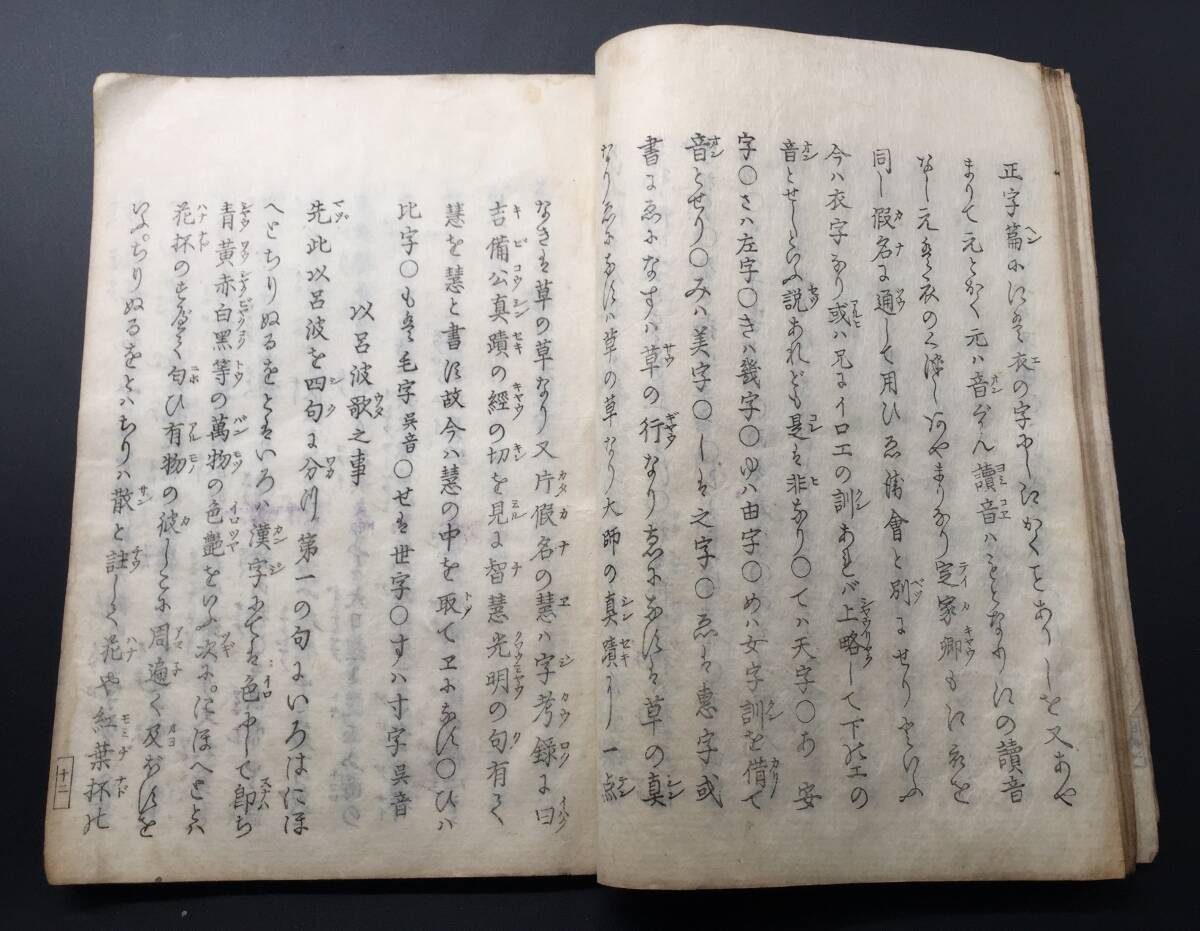 正字篇にハえ衣の字にしたかくもありしを又あや
まりて元とかく元ハ音ゲん讀音ハことなりハの讀音
なし元え衣のくづしあやまりなり定家卿も
同し假名に通して用ひゑ衛會と別にせりといふ
今ハ衣字なり或ハ兄にイロエの訓あれバ上略して下のエの
音とせしといふ説あれども是は非なり〇てハ天字〇あ安
字〇さハ左字〇きハ幾字〇ゆハ由字〇めハ女字訓を借て
音とせり〇みハ美字〇しは之字〇ゑは惠字或
書にゑになすハ草の行なりゑになすは草の真
なりゑになすハ草の草なり大師の真蹟に一点
なきは草の草なり又片假名の慧ハ字考録に曰
吉備公真蹟の經の切を見に智慧光明の句有て
慧を慧と書す故今ハ慧の中を取てヱになす〇ひハ
比字〇もは毛字呉音〇せは世字〇すハ寸字呉音
以呂波歌之事
先此以呂波を四句に分川第一の句にいろはにほ
へとちりぬるをとはいろハ漢字にては色にして即ち
青黄赤白黒等の萬物の色艷をいふ次に。にほへととハ
花杯のうるハしく匂ひ有物の彼しこに周遍く及ぼすを
いふ。ちりぬるをとハちりハ散と註して花や紅葉杯の
十二